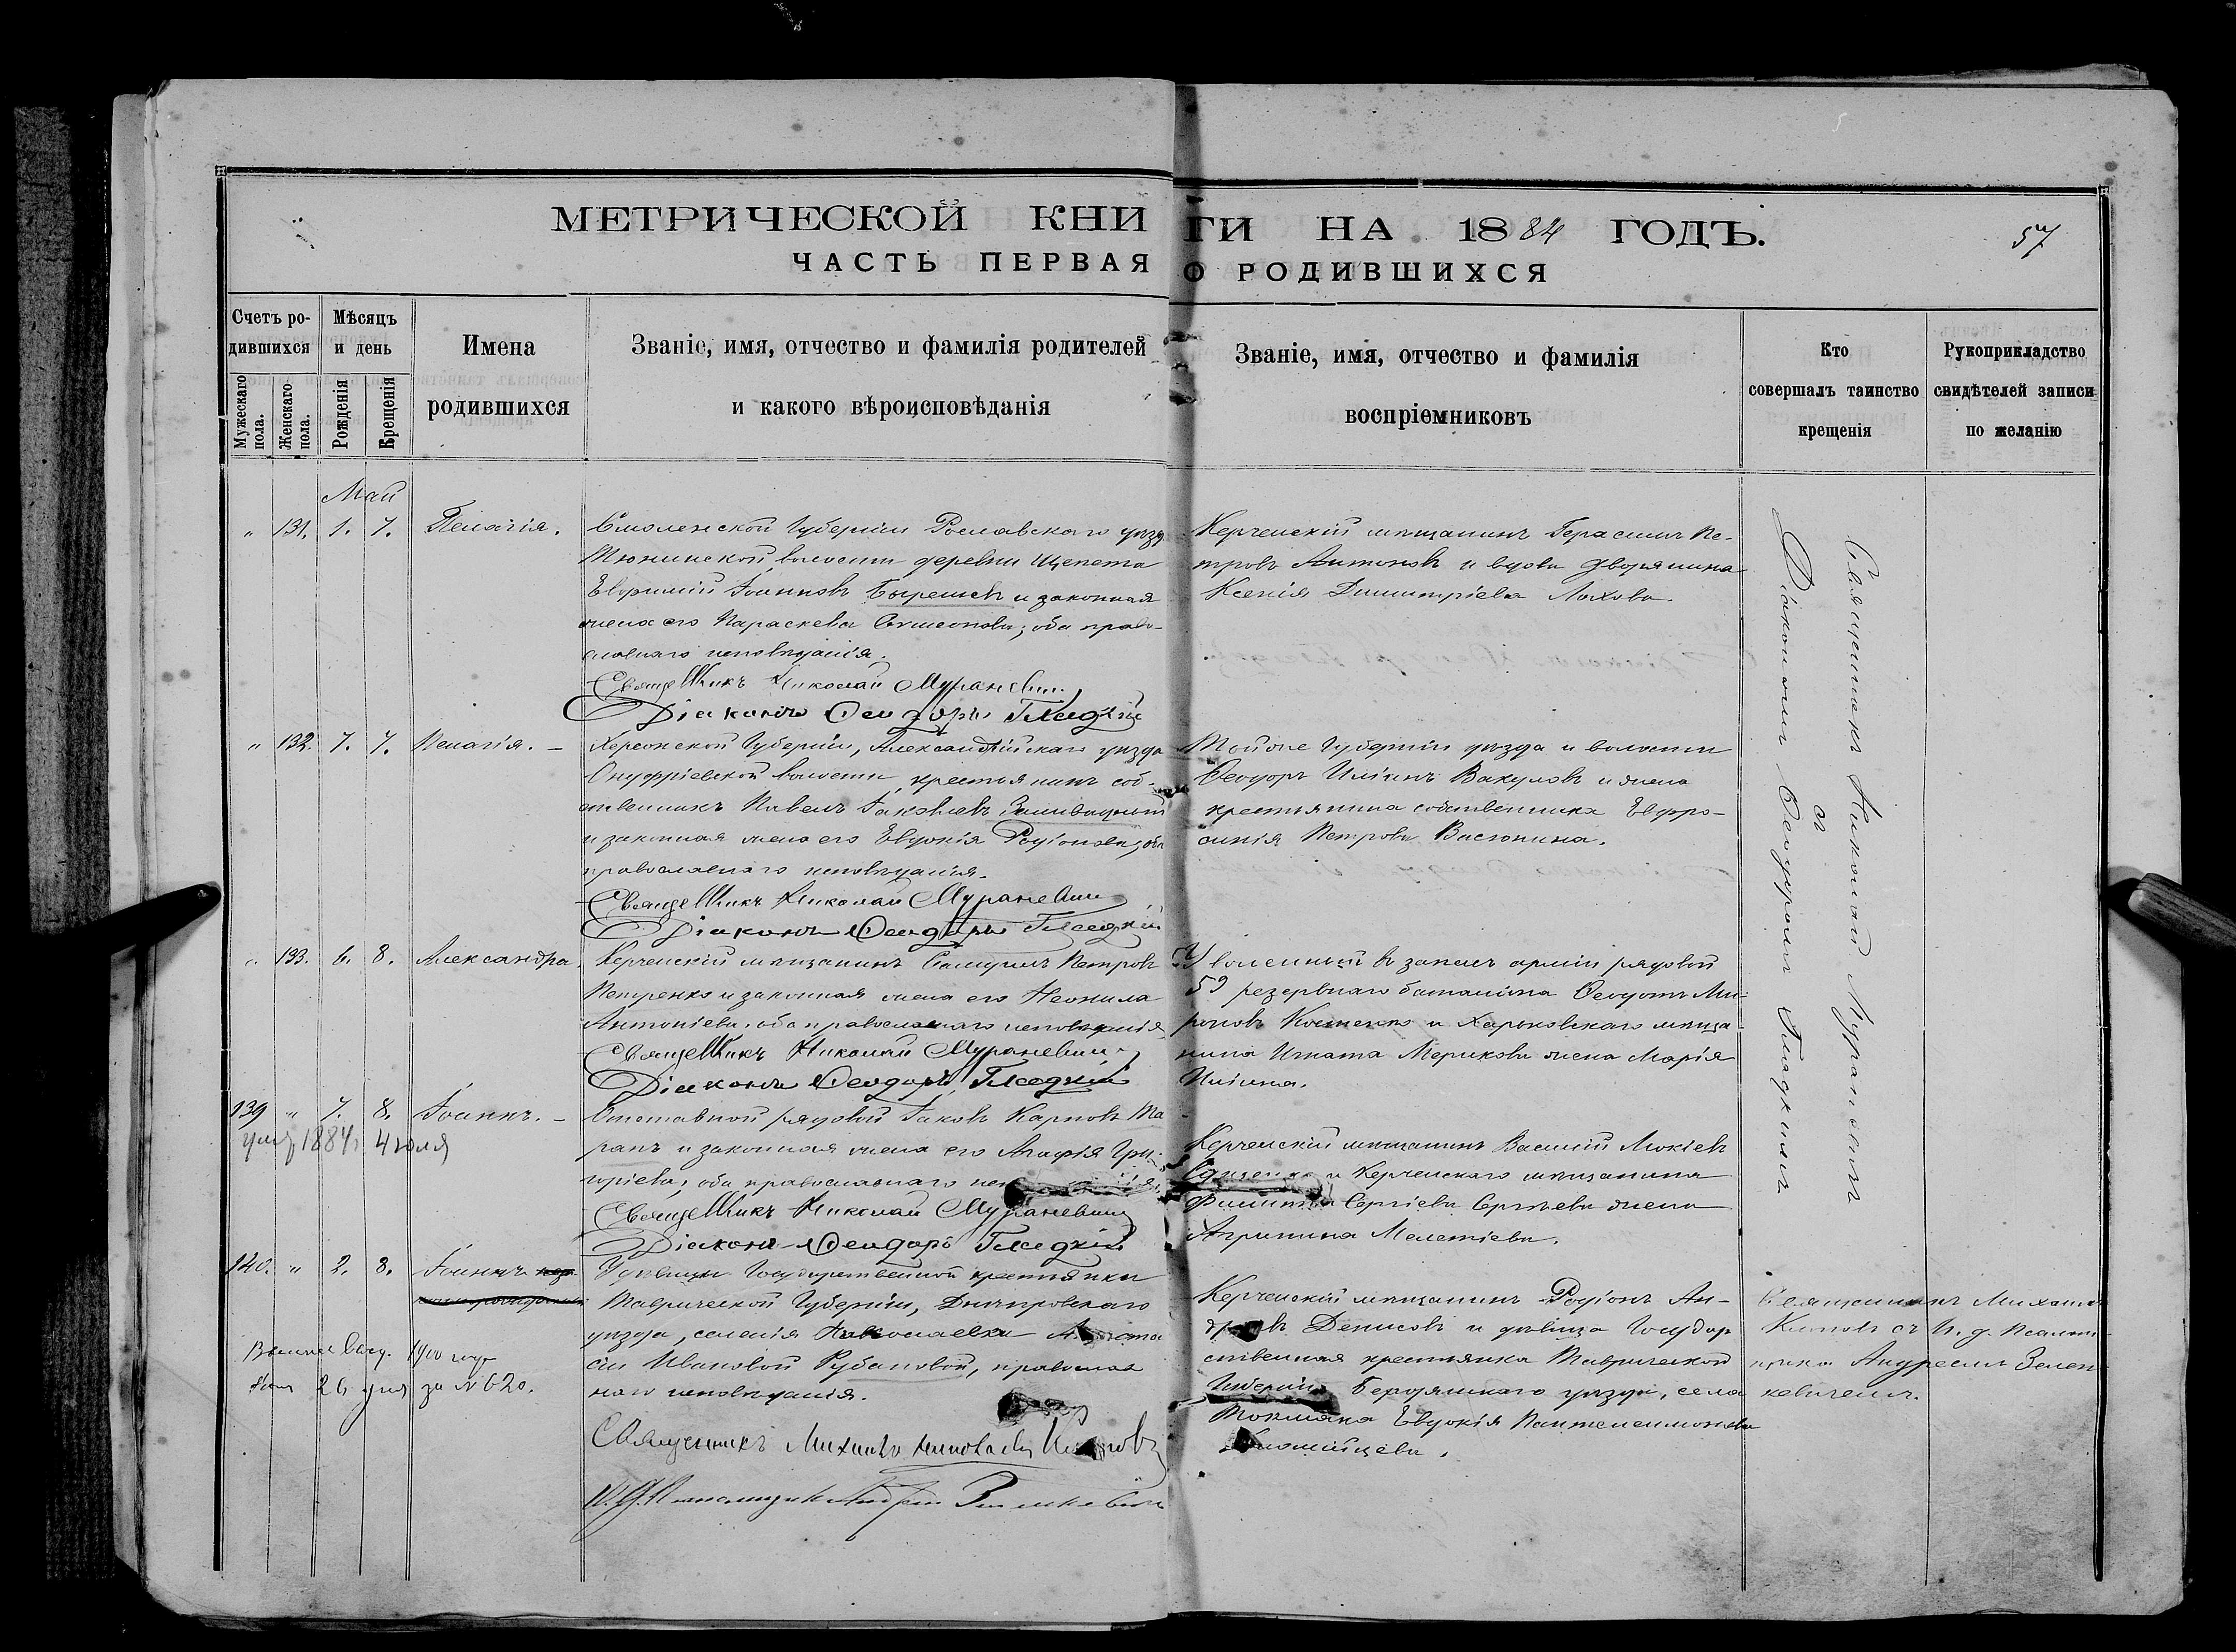 МЕТРИЧЕСКОЙ КНИГИ НА 1884 ГОДЪ.
57
ЧАСТЬ ПЕРВАЯ О РОДИВШИХСЯ
Счетъ родившихся
Мужескаго пола.
Женскаго пола.
Мѣсяцъ и день
Рожденія
Крещенія
Имена родившихся
Званіе, имя, отчество и фамилія родителей и какого вѣроисповѣданія
Званіе, имя, отчество и фамилія воспріемниковъ
Кто совершалъ таинство крещенія
Рукоприкладство свидѣтелей записи по желанію
Май
" 131. 1. 7. Пелагія.
Смоленской Губерніи Рославскаго уѣзда
Тюнинской волости деревни Щепета
Евфимій Іоанновъ и законная
жена его Параскева Симеонова; оба право-
славнаго исповѣданія.
Священникъ Николай Мураневич
Діаконъ Ѳеодоръ Гладкій
Керченскій мѣщанинъ Герасимъ Пе-
тровъ Антоновъ и вдова дворянина
Ксенія Димитріева Лахова
" 132. 7. 7. Пелагія. –
Херсонской Губерніи, Александрійскаго уѣзда
Онуфріевской волости, крестьянинъ соб-
ственникъ Павелъ Іаковлевъ
и законная жена его Евдокія Родіонова; оба
православнаго исповѣданія.
Священникъ Николай Мураневич
Діаконъ Ѳеодоръ Гладкій
Тойже Губерніи уѣзда и волости
Ѳеодоръ Иліинъ Вакуловъ и жена
крестьянина собственника Евфро-
синія Петрова Васюнина.
" 133. 6. 8. Александра.
Керченскій мѣщанинъ Самуилъ Петровъ
Петренко и законная жена его Неонила
Антоніева, оба православнаго исповѣданія
Священникъ Николай Мураневич
Діаконъ Ѳеодоръ Гладкій
Уволенный въ запасъ арміи рядовой
59 резервнаго баталіона Ѳеодотъ Ми-
роновъ Костенко и Харьковскаго мѣща-
нина Игната Мерикова жена Марія
Иліина.
139 " 7. 8. Іоаннъ. –
1884 4 юля
Отставной рядовой Іаковъ Карповъ Та-
ранъ и законная жена его Агафія Гри-
горіева, оба православнаго
Священникъ Николай Мураневич
Діаконъ Ѳеодоръ Гладкій
Керченскій мѣщанинъ Василій Мокіевъ
и Керченскаго мѣщанина
Филиппа Сергіева Сергѣева жена
Агрипина Мелетіева.
Священникъ Николай Мураневичъ
съ
Діакономъ Ѳеодоромъ Гладкимъ
140. " 2. 8. Іоаннъ
1900 года
26 за № 620.
У дѣвицы Государственной крестьянки
Таврической Губерніи, Днѣпровскаго
уѣзда, селенія Николаевки
Ивановой Рубановой, православ
наго исповѣданія.
Священникъ Михаилъ
Андрей
Керченскій мѣщанинъ Родіонъ Ан-
Денисовъ и дѣвица Государ
ственная крестьянка Таврической
Губерніи Бердянскаго уѣзда, села
Токмака Евдокія Пантелеимонова
Священникъ Михаилъ
съ И. д. Псалом-
щика Андреемъ Зелен-
кевичемъ.